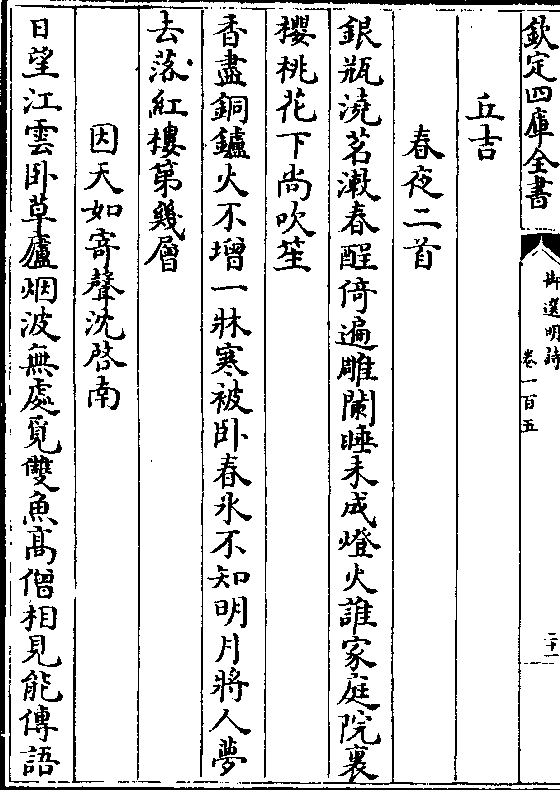 欽定四庫全書
御選明詩
卷一百五
二十一
丘吉
春夜二首
銀瓶澆茗漱春酲倚遍雕闌睡未成燈火誰家庭院裏
櫻桃花下尚吹笙
香盡銅鑪火不增一牀寒被卧春氷不知明月將人夢
去落紅樓第幾層
因天如寄聲沈啓南
日望江雲卧草廬烟波無處覓雙魚髙僧相見能傳語